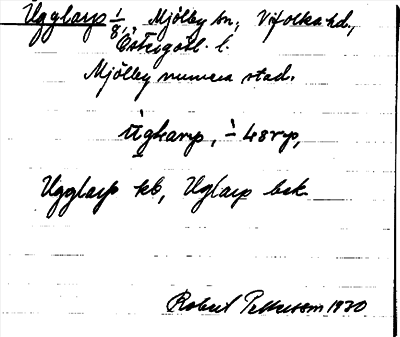 Ugglarp 1/8, Mjölby sn, Vifolka hd,
Östergötl. l.
Mjölby numera stad.
Ugglarp kb, Uglarp bsk.
Robert Pettersson 1930